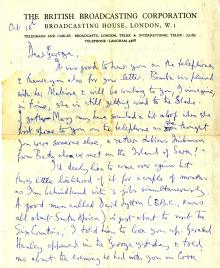 THE BRITISH BROADCASTING CORPORATION
BROADCASTING HOUSE, LONDON, W.1
TELEGRAMS AND CABLES: BROADCASTS, LONDON, TELEX ★ INTERNATIONAL TELEX:
TELEPHONE: LANGHAM 4468
Oct 18th
Dear George
It was good to hear you on the telephone
& thank you also for your letter.
with his Makins & will be writing to you, I imagine,
in time, she is still getting used to the State.
I gather Mary may have sounded a bit aloof when she
first spoke to you on the telephone as she thought
you were someone else, a rather tedious Irishman
from Betty whom we met on the Island of
I'd dearly love to come over again but
there's little likelihood of it for a couple of months
as I'm behindhand with 2 jobs simultaneously.
A good man called David Lytton (B.B.C., knows
all about South Africa) is just about to visit the
Six Counties; I told him to look you up. Gerard
Hanley appeared in the George yest'day & told
me about the evening he had with you in Cork